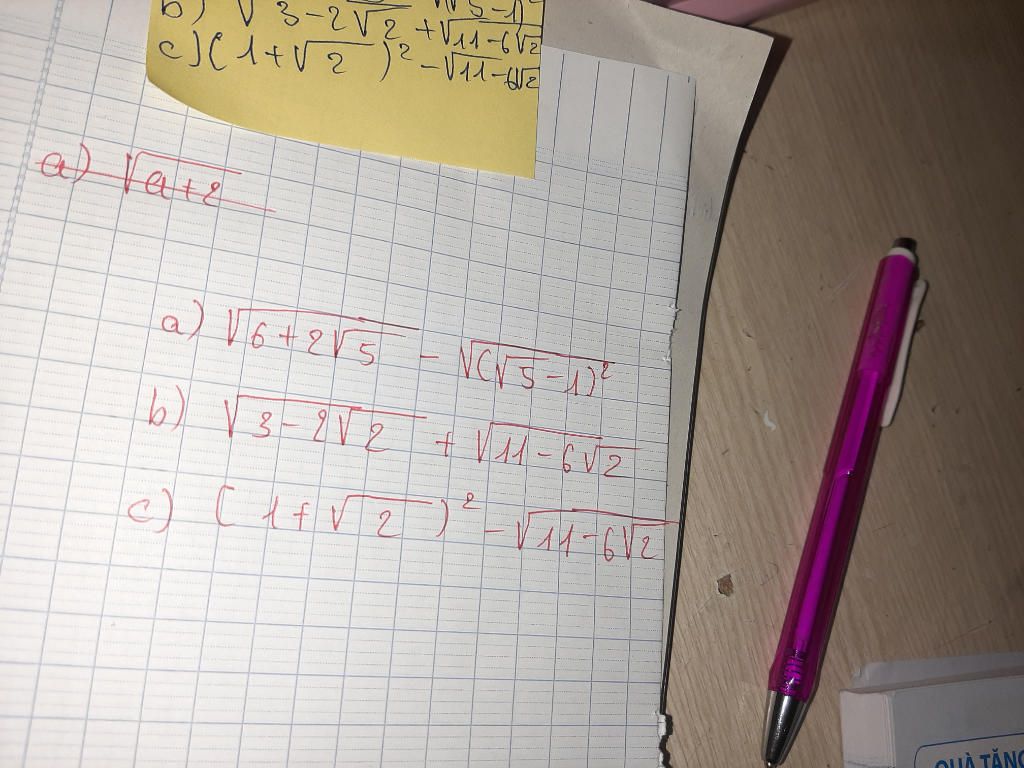 b) √3-2√2 + √11-6√2
c) (1+√2)² - √11-6√2
a) √a+2
a) √6+2√5 - √(√5-1)²
b) √3-2√2 + √11-6√2
c) (1+√2)² - √11-6√2
QUÀ TẶNG